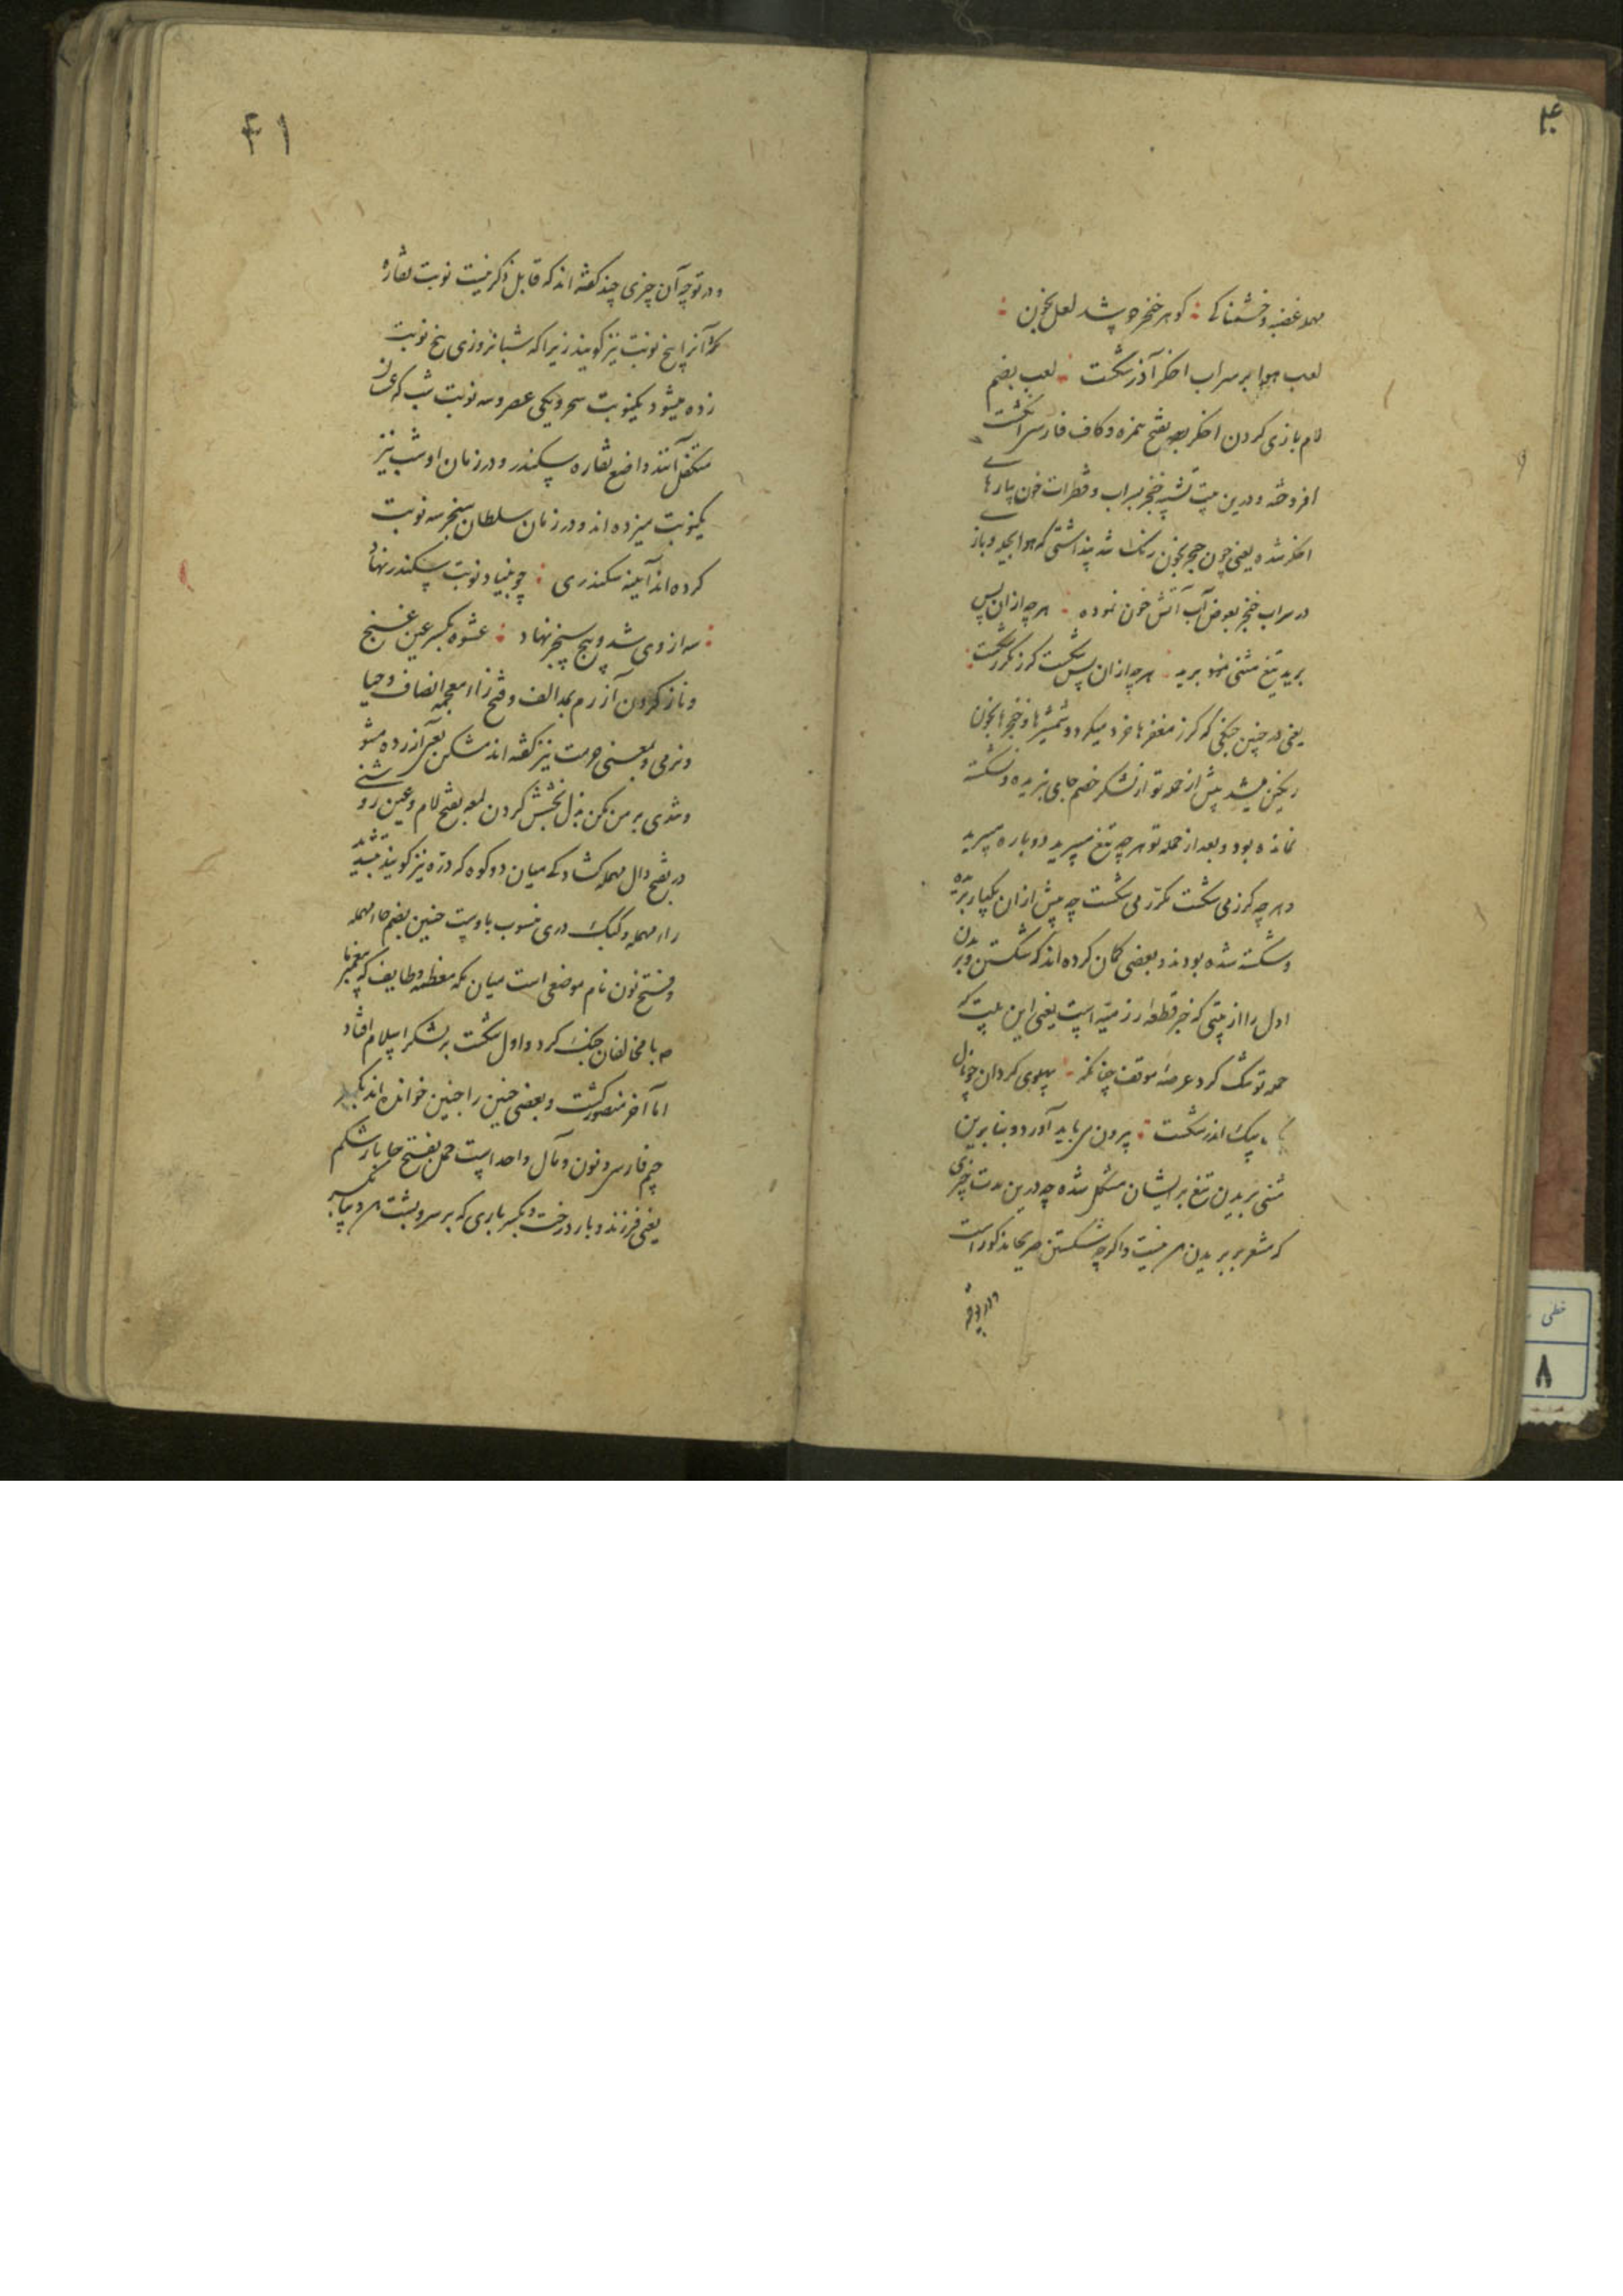 ۴۰
مهمله غضب و خشمناکی ؛ گوهر خنجر چو شد لعل بخون ؛
لعب هوا بر سراب اخگر آذر شکست ؛ لعب بضم
لام بازی کردن اخگر بفتح همزه و کاف فارسی انگشت
افروخته و درین بیت تشبیه خنجر بسراب و قطرات خون پارهای
اخگر شده یعنی چون خنجر بخون رنگ شد پنداشتی که هوا بلعب و باز
در سراب خنجر بعوض آب آتش خون نموده ؛ هرچه ازان پس
برید تیغ مثنی برید ؛ هرچه ازان پس شکست گرز مکرر شکست ؛
یعنی در چنین جنگی که گرز مغفرها خرد میکرد و شمشیرها و خنجرها بخون
رنگین میشد پیش از حمله تو از لشکر خصم جای نبریده و نشکسته
نمانده بود و بعد از حمله تو هرچه تیغ میبرید دوباره میبرید
و هرچه گرز می شکست مکرر می شکست چه پیش ازان یکبار بریده
و شکسته شده بودند و بعضی گمان کرده اند که شکستن و بریدن
اول را از بیتی که خبر قطعه رزمیه است یعنی این بیت که
حمله تو تنگ کرد عرصه موقف چنانکه ؛ پهلوی گردان چو نال
یک بیک اندر شکست ؛ بیرون می باید آورد و بنابرین
مثنی بریدن تیغ بر ایشان مشکل شده چه درین بیت چیزی
که مشعر بر بریدن سر نیست و اگرچه شکستن صریحا مذکور است
و در توجیه
۴۱
و در توجیه آن چیزی چند گفته اند که قابل ذکر نیست نوبت نقاره
که آنرا پنج نوبت نیز گویند زیرا که شبانروزی پنج نوبت
زده میشود یکنوبت سحر و یکی عصر و سه نوبت شب که
متکفل آنند واضع نقاره سکندر و در زمان او شب نیز
یکنوبت میزده اند و در زمان سلطان سنجر سه نوبت
کرده اند آیینه سکندری ؛ چو بنیاد نوبت سکندر نهاد
؛ سه از وی شد و پنج سنجر نهاد ؛ عشوه بکسر عین غنج
و ناز کردن آزرم بمد الف و فتح زاء معجمه انصاف و حیا
و نرمی و بمعنی حرمت نیز گفته اند مشکن یعنی آزرده مشو
و تندی بر من مکن بذل بخشش کردن لمعه بفتح لام و عین روشنی
در بفتح دال مهمله گشادگی میان دو کوه که دره نیز گویند بتشدید
راء مهمله و کبک دری منسوب باوست حنین بضم حاء مهمله
و فتح نون نام موضعی است میان مکه معظمه و طایف که پیغمبر ما
ص با مخالفان جنگ کرد و اول شکست بر لشکر اسلام افتاد
اما آخر منصور گشت و بعضی حنین را چنین خوانده اند بکسر
چیم فارسی و نون و مآل واحد است حمل بفتح حا بار شکم
یعنی فرزند و بار درخت و بکسر باری که بر سر و پشت
خطی
۸